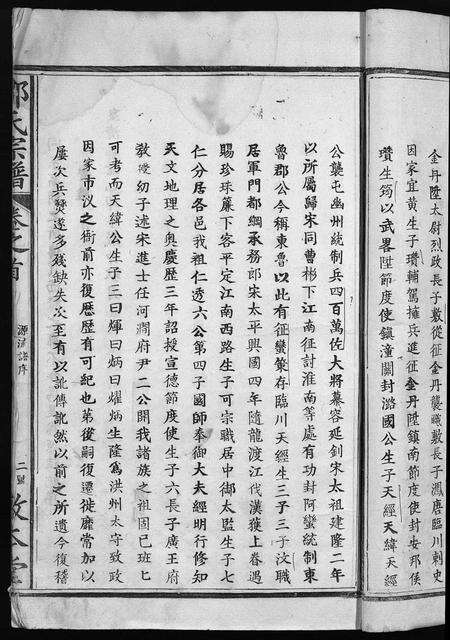 金丹陞太尉烈政長子數從征金丹襲職數長子渢唐臨川刺史
因家宜黃生子瓚輔駕擁兵進征金丹陞鎮南節度使封安邦侯
瓚生筠以武畧陞節度使鎮潼關封潞國公生子天經天緯天經
公襲屯幽州統制兵四百萬佐大將慕容延釗宋太祖建隆二年
以所屬歸宋同曹彬下江南征討淮南等處有功封阿蠻統制東
魯郡公今稱東魯以此有征蠻策存臨川天經生二子三子汶職
居軍門都綱承務郎宋太平興國四年隨龍渡江伐漢獲上眷遇
賜珍珠簾下客平定江南西路生子可宗職居中御太監生子七
仁分居各邑我祖仁透六公第四子國師奉御大夫經明行修知
天文地理之奧慶歷三年詔授宣德節度使生子六長子廣王府
教授幼子述宋進士任河澗府尹二公開我諸族之祖固已班匕
可考而天緯公生子三曰輝曰炳曰燿炳生隆爲洪州太守致政
因家市汊之衙前亦復歷歷有可紀也第後嗣復遷徙靡常加以
屢次兵燹遂多殘缺失次至有以訛傳訛然以前之所遺今復稽
氏宗譜
卷之首
源流譜序
二